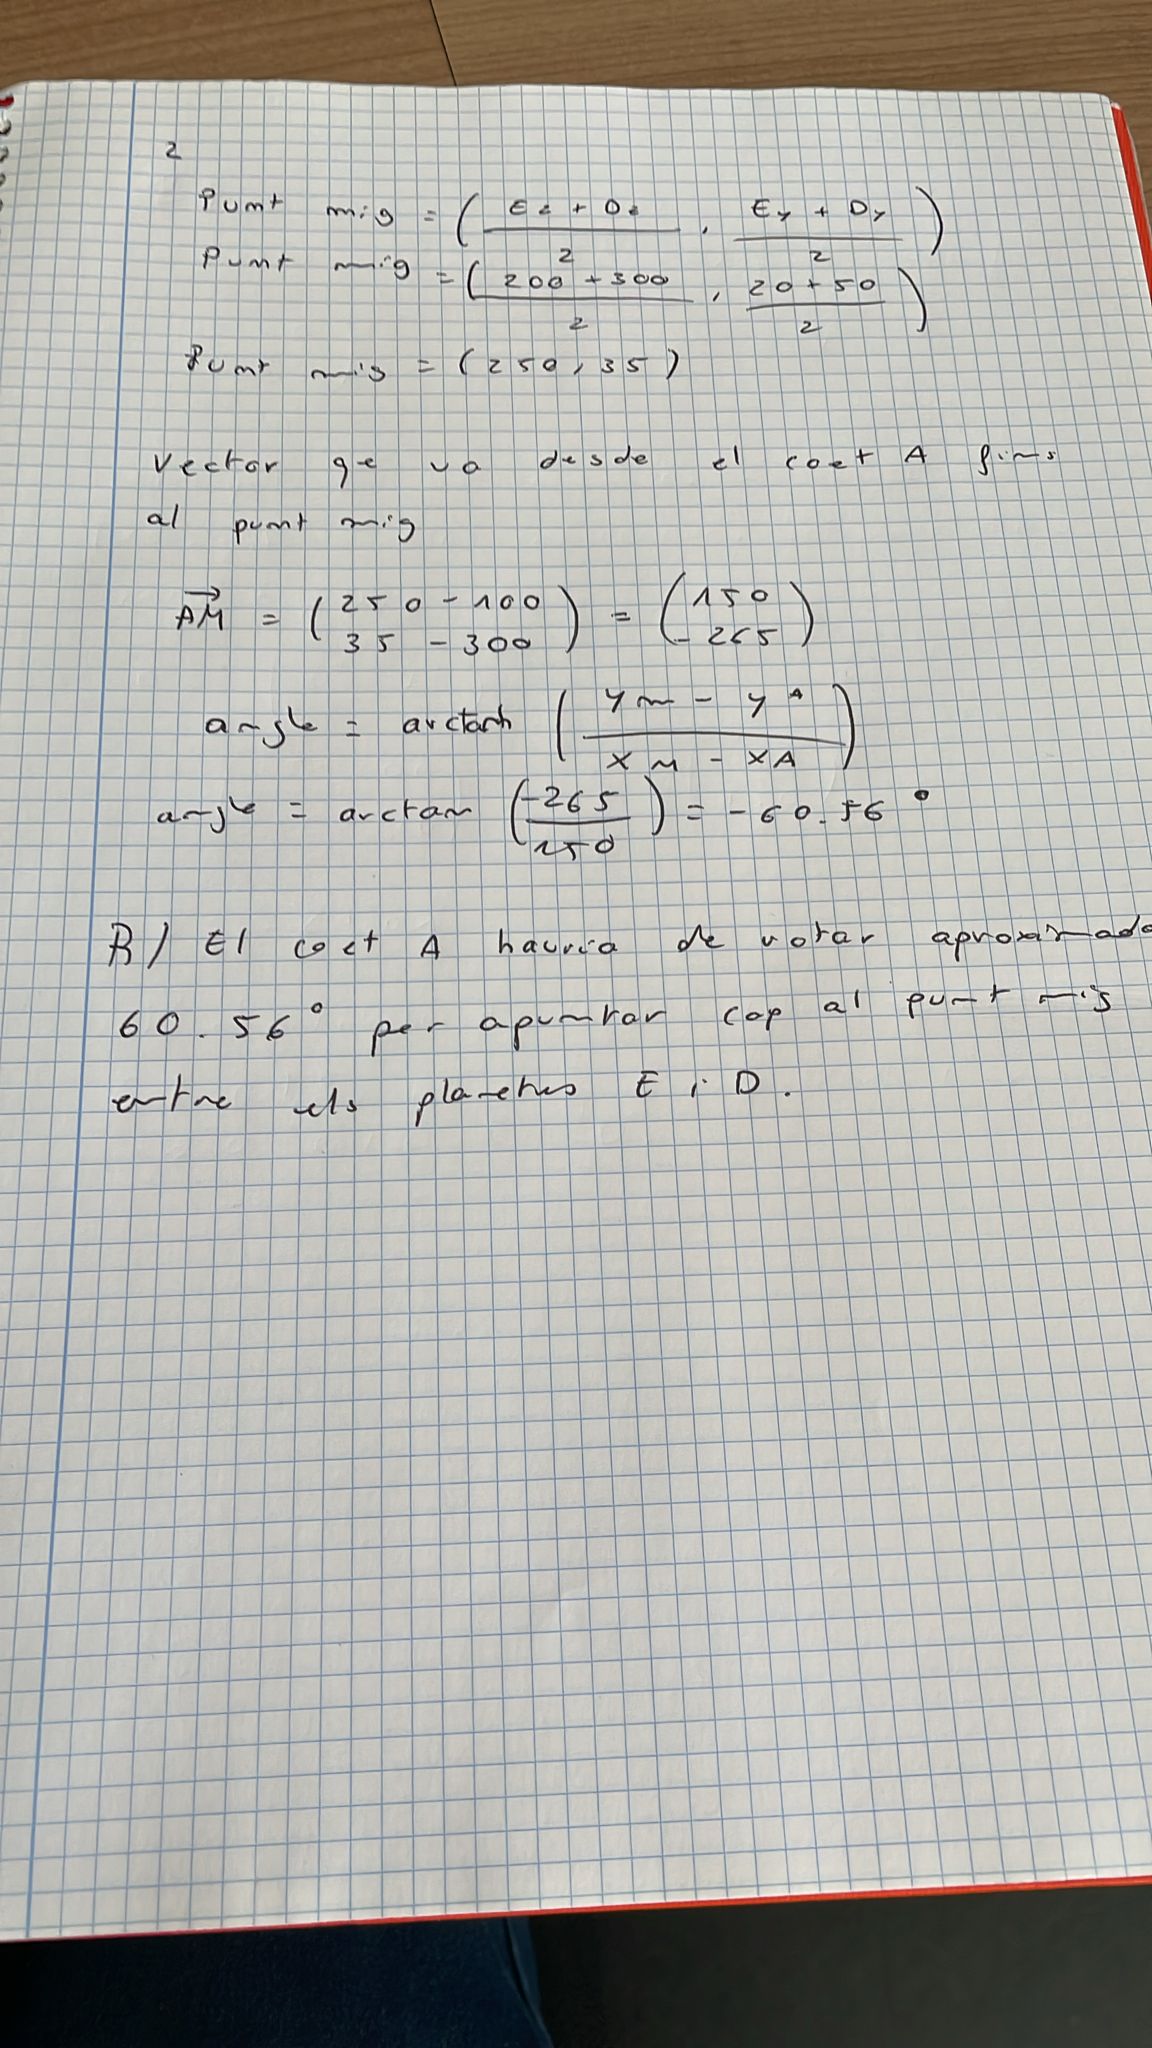 2
Punt mig = ( Ex + Dx / 2 , Ey + Dy / 2 )
Punt mig = ( 200 + 300 / 2 , 20 + 50 / 2 )
Punt mig = ( 250 , 35 )
Vector qe va desde el coet A fins
al punt mig
AM = ( 250 - 100 35 - 300 ) = ( 150 - 265 )
angle = arctanh ( ym - yA / xM - xA )
angle = arctan ( -265 / 150 ) = -60.56°
R/ El coet A hauria de rotar aproximada
60.56° per apuntar cap al punt mig
entre els planetes E i D.